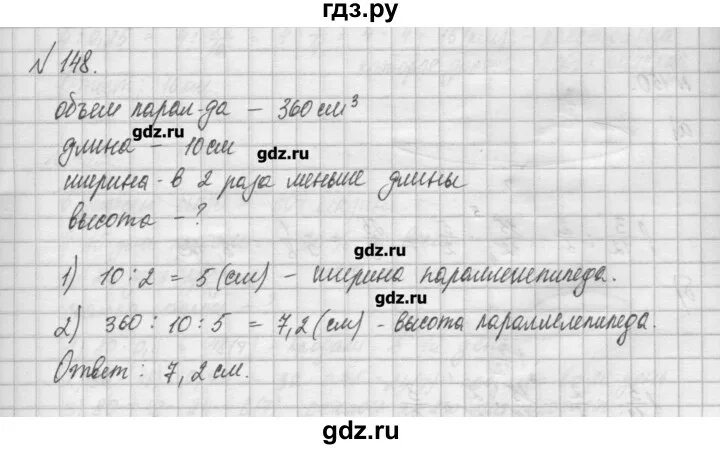 гдз.ру
N 148.
объем парал-да – 360 см³
gdz.ru
длина – 10 см
gdz.ru
ширина - в 2 раза меньше длины
высота – ?
gdz.ru
1) 10 : 2 = 5 (см) – ширина параллелепипеда.
gdz.ru
2) 360 : 10 : 5 = 7,2 (см) - высота параллелепипеда.
Ответ : 7,2 см.
gdz.ru